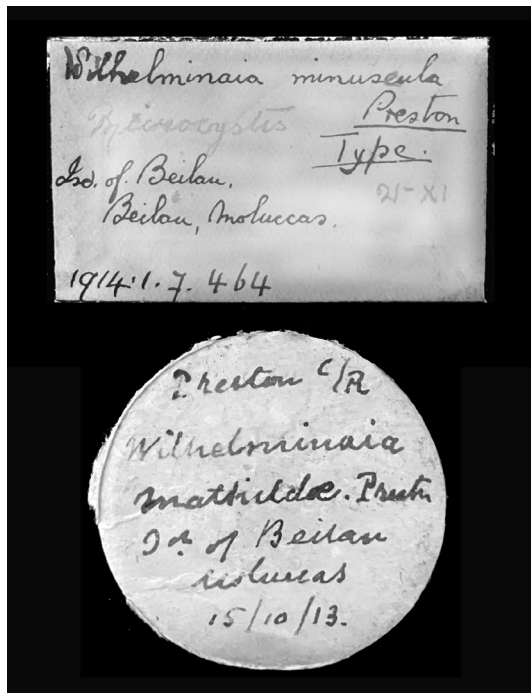 Wilhelminaia minuscula
Preston
Type.
Isd. of Beilau,
Beilau, Moluccas.
21-XI
1914.1.7.464
Preston C/R
Wilhelminaia
mathildæ. Prestn
Id. of Beilau
Moluccas
15/10/13.